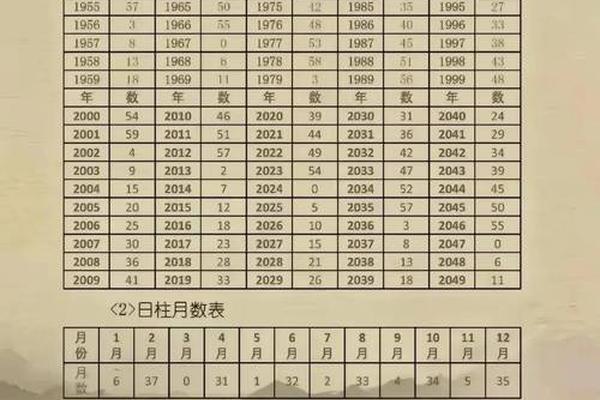 1955 57 1965 50 1975 42 1985 35 1995 27
1956 3 1966 55 1976 48 1986 40 1996 33
1957 8 1967 0 1977 53 1987 45 1997 38
1958 13 1968 6 1978 58 1988 51 1998 43
1959 18 1969 11 1979 3 1989 56 1999 48
年 数 年 数 年 数 年 数 年 数
2000 54 2010 46 2020 39 2030 31 2040 24
2001 59 2011 51 2021 44 2031 36 2041 29
2002 4 2012 57 2022 49 2032 42 2042 34
2003 9 2013 2 2023 54 2033 47 2043 39
2004 15 2014 7 2024 0 2034 52 2044 45
2005 20 2015 12 2025 5 2035 57 2045 50
2006 25 2016 18 2026 10 2036 3 2046 55
2007 30 2017 23 2027 15 2037 8 2047 0
2008 36 2018 28 2028 21 2038 13 2048 6
2009 41 2019 33 2029 26 2039 18 2049 11
<2>日柱月数表
月份 1月 2月 3月 4月 5月 6月 7月 8月 9月 10月 11月 12月
月数 6 37 0 31 1 32 2 33 4 34 5 35